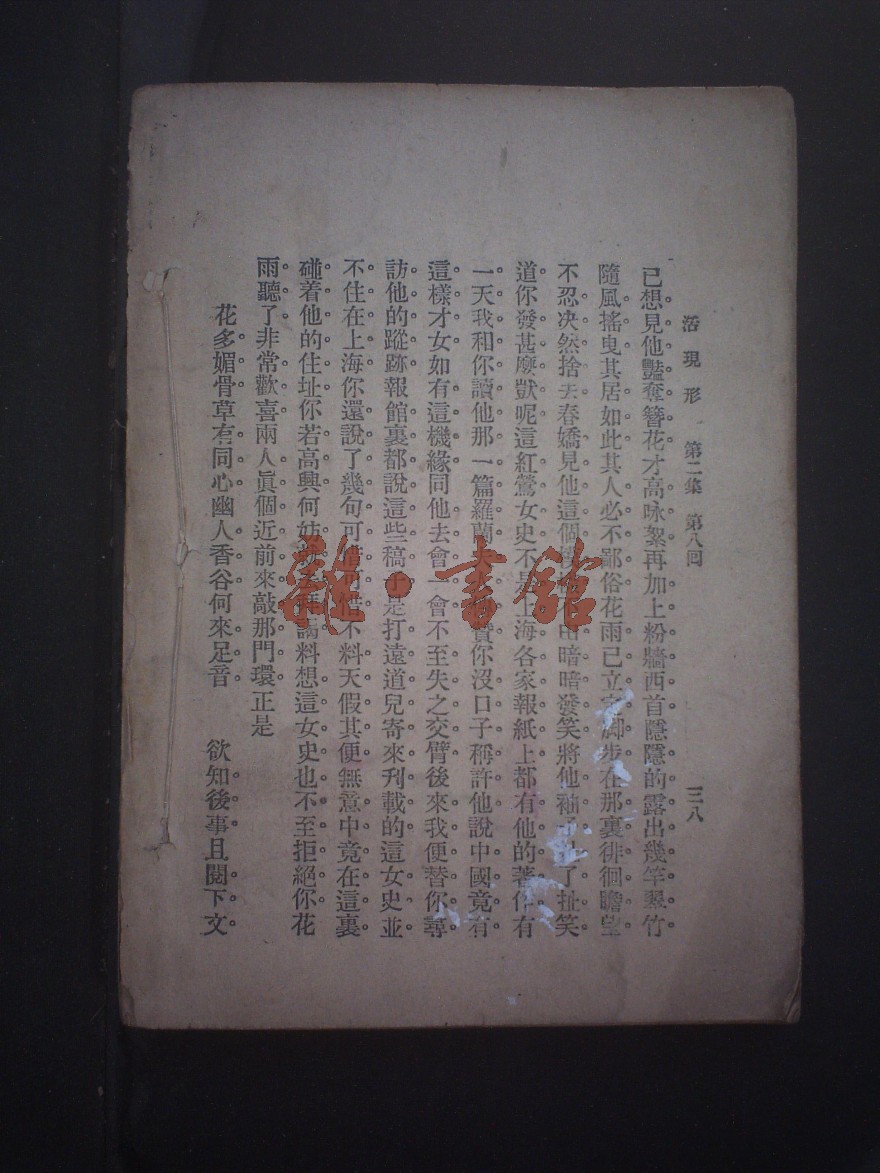 活現形 第二集 第八回 三八
已想見他豔奪簪花才高咏絮再加上粉牆西首隱隱的露出幾竿翠竹
隨風搖曳其居如此其人必不鄙俗花雨已立定脚步在那裏徘徊瞻望
不忍决然捨去春嬌見他這個模暗暗發笑將他袖子了扯笑
道你發甚麽獃呢這紅鶯女史不是上海各家報紙上都有他的著作有
一天我和你讀他那一篇羅蘭夫人贊你沒口子稱許他說中國竟有
這樣才女如有這機緣同他去會一會不至失之交臂後來我便替你尋
訪他的蹤跡報館裏都說這些稿子是打遠道兒寄來刋載的這女史並
不住在上海你還說了幾句可惜可惜不料天假其便無意中竟在這裏
碰着他的住址你若高興何妨去拜謁料想這女史也不至拒絕你花
雨聽了非常歡喜兩人眞個近前來敲那門環正是
花多媚骨草有同心幽人香谷何來足音 欲知後事且閱下文
雜·書館